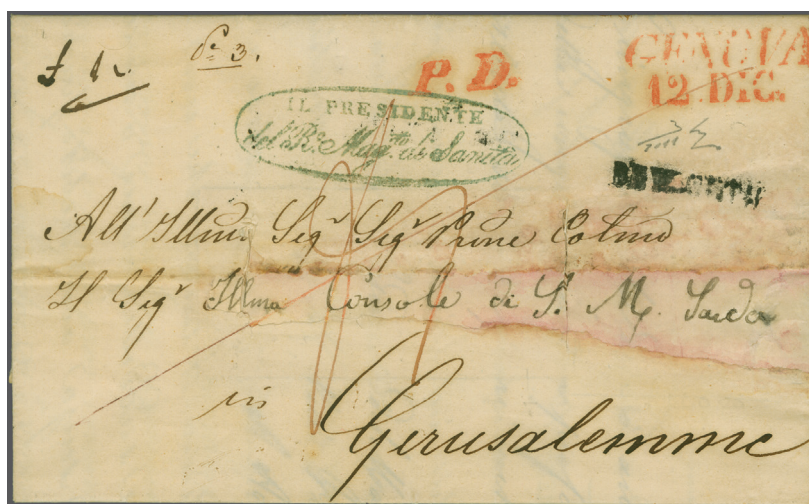 P. D.
GENOVA
12. DIC.
IL PRESIDENTE
del Rº. Magto. di Sanità
All' Illmo. Sigr. Sigr. Prone Colmo
Il Sigr. Console di S. M. Sarda
in
Gerusalemme